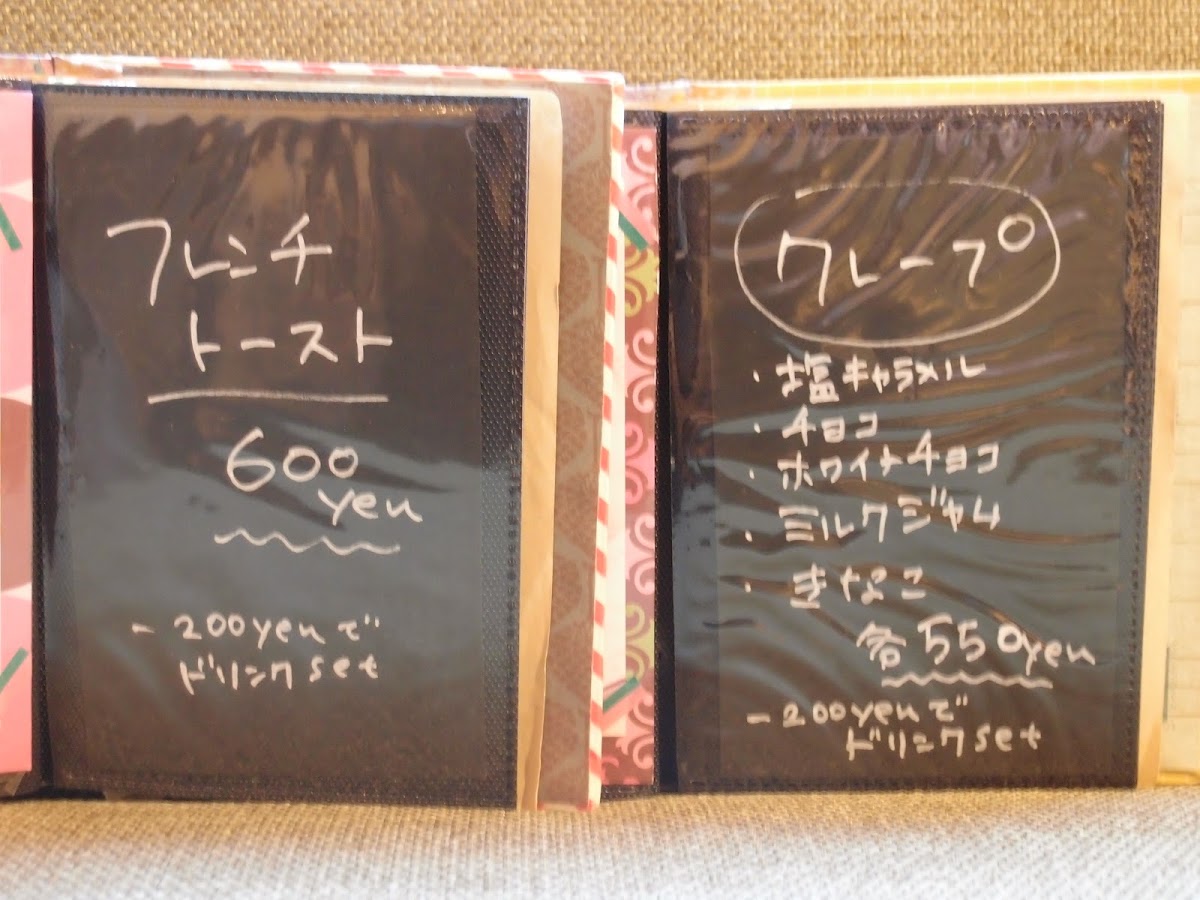 フレンチ
トースト
600
yen
- 200yenで
ドリンクset
クレープ
・塩キャラメル
・チョコ
・ホワイトチョコ
・ミルクジャム
・きなこ
各550yen
- 200yenで
ドリンクset